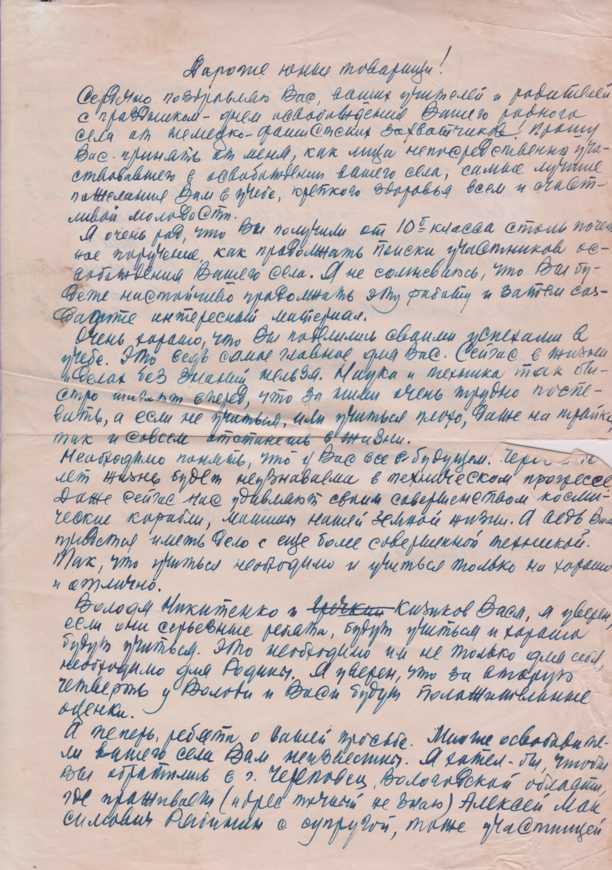 Дароже юные товарищи!
Сердечно поздравляю Вас, ваших учителей и родителей
с праздником - днем освобождения Вашего родного
села от немецко-фашистских захватчиков! Прошу
Вас принять от меня, как лица непосредственно уча-
ствовавшего в освобождении вашего села, самые лучшие
пожелания Вам в учебе, крепкого здоровья всем и счаст-
ливой молодости.
Я очень рад, что Вы получили от 10го класса столь почет
ное поручение, как продолжать поиски участников ос-
вобождения Вашего села. Я не сомневаюсь, что Вы бу-
дете настойчиво продолжать эту работу и затем соз-
дадите интересный материал.
Очень хорошо, что Вы поделились своими успехами в
учебе. Это ведь самое главное для Вас. Сейчас в жизни
и делах без знаний нельзя. Наука и техника так бы-
стро шагают вперед, что за ними очень трудно поспе-
вать, а если не учиться, или учиться плохо, даже на тройки
так и совсем отстанешь в жизни.
Необходимо понять, что у Вас все в будущем. Через
лет жизнь будет неузнаваема в техническом прогрессе
Даже сейчас нас удивляют своим совершенством косми-
ческие корабли, машины нашей земной жизни. А ведь Вам
придется иметь дело с еще более совершенной техникой.
Так, что учиться необходимо и учиться только на хорошо
и отлично.
Володя Никитенко и Кизиков Вася, я уверен,
если они серьезные ребята, будут учиться и хорошо
будут учиться. Это необходимо им не только для себя,
необходимо для Родины. Я уверен, что за вторую
четверть у Володи и Васи будут положительные
оценки.
А теперь, ребята, о вашей просьбе. Многие освободите-
ли вашего села Вам неизвестны. Я хотел-бы, чтобы
вы обратились в г. Череповец, Вологодской области,
где проживает (адрес точный не знаю) Алексей Мак
симович с супругой, тоже участницей